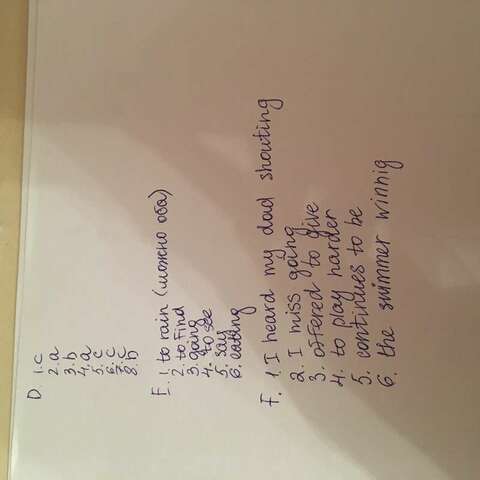 D. 1. c
2. a
3. b
4. a
5. c
6. c
7. c
8. b
E. 1. to rain (можно оба)
2. to find
3. going
4. to see
5. say
6. eating
F. 1. I heard my dad shouting
2. I miss going
3. offered to give
4. to play harder
5. continues to be
6. the swimmer winnig